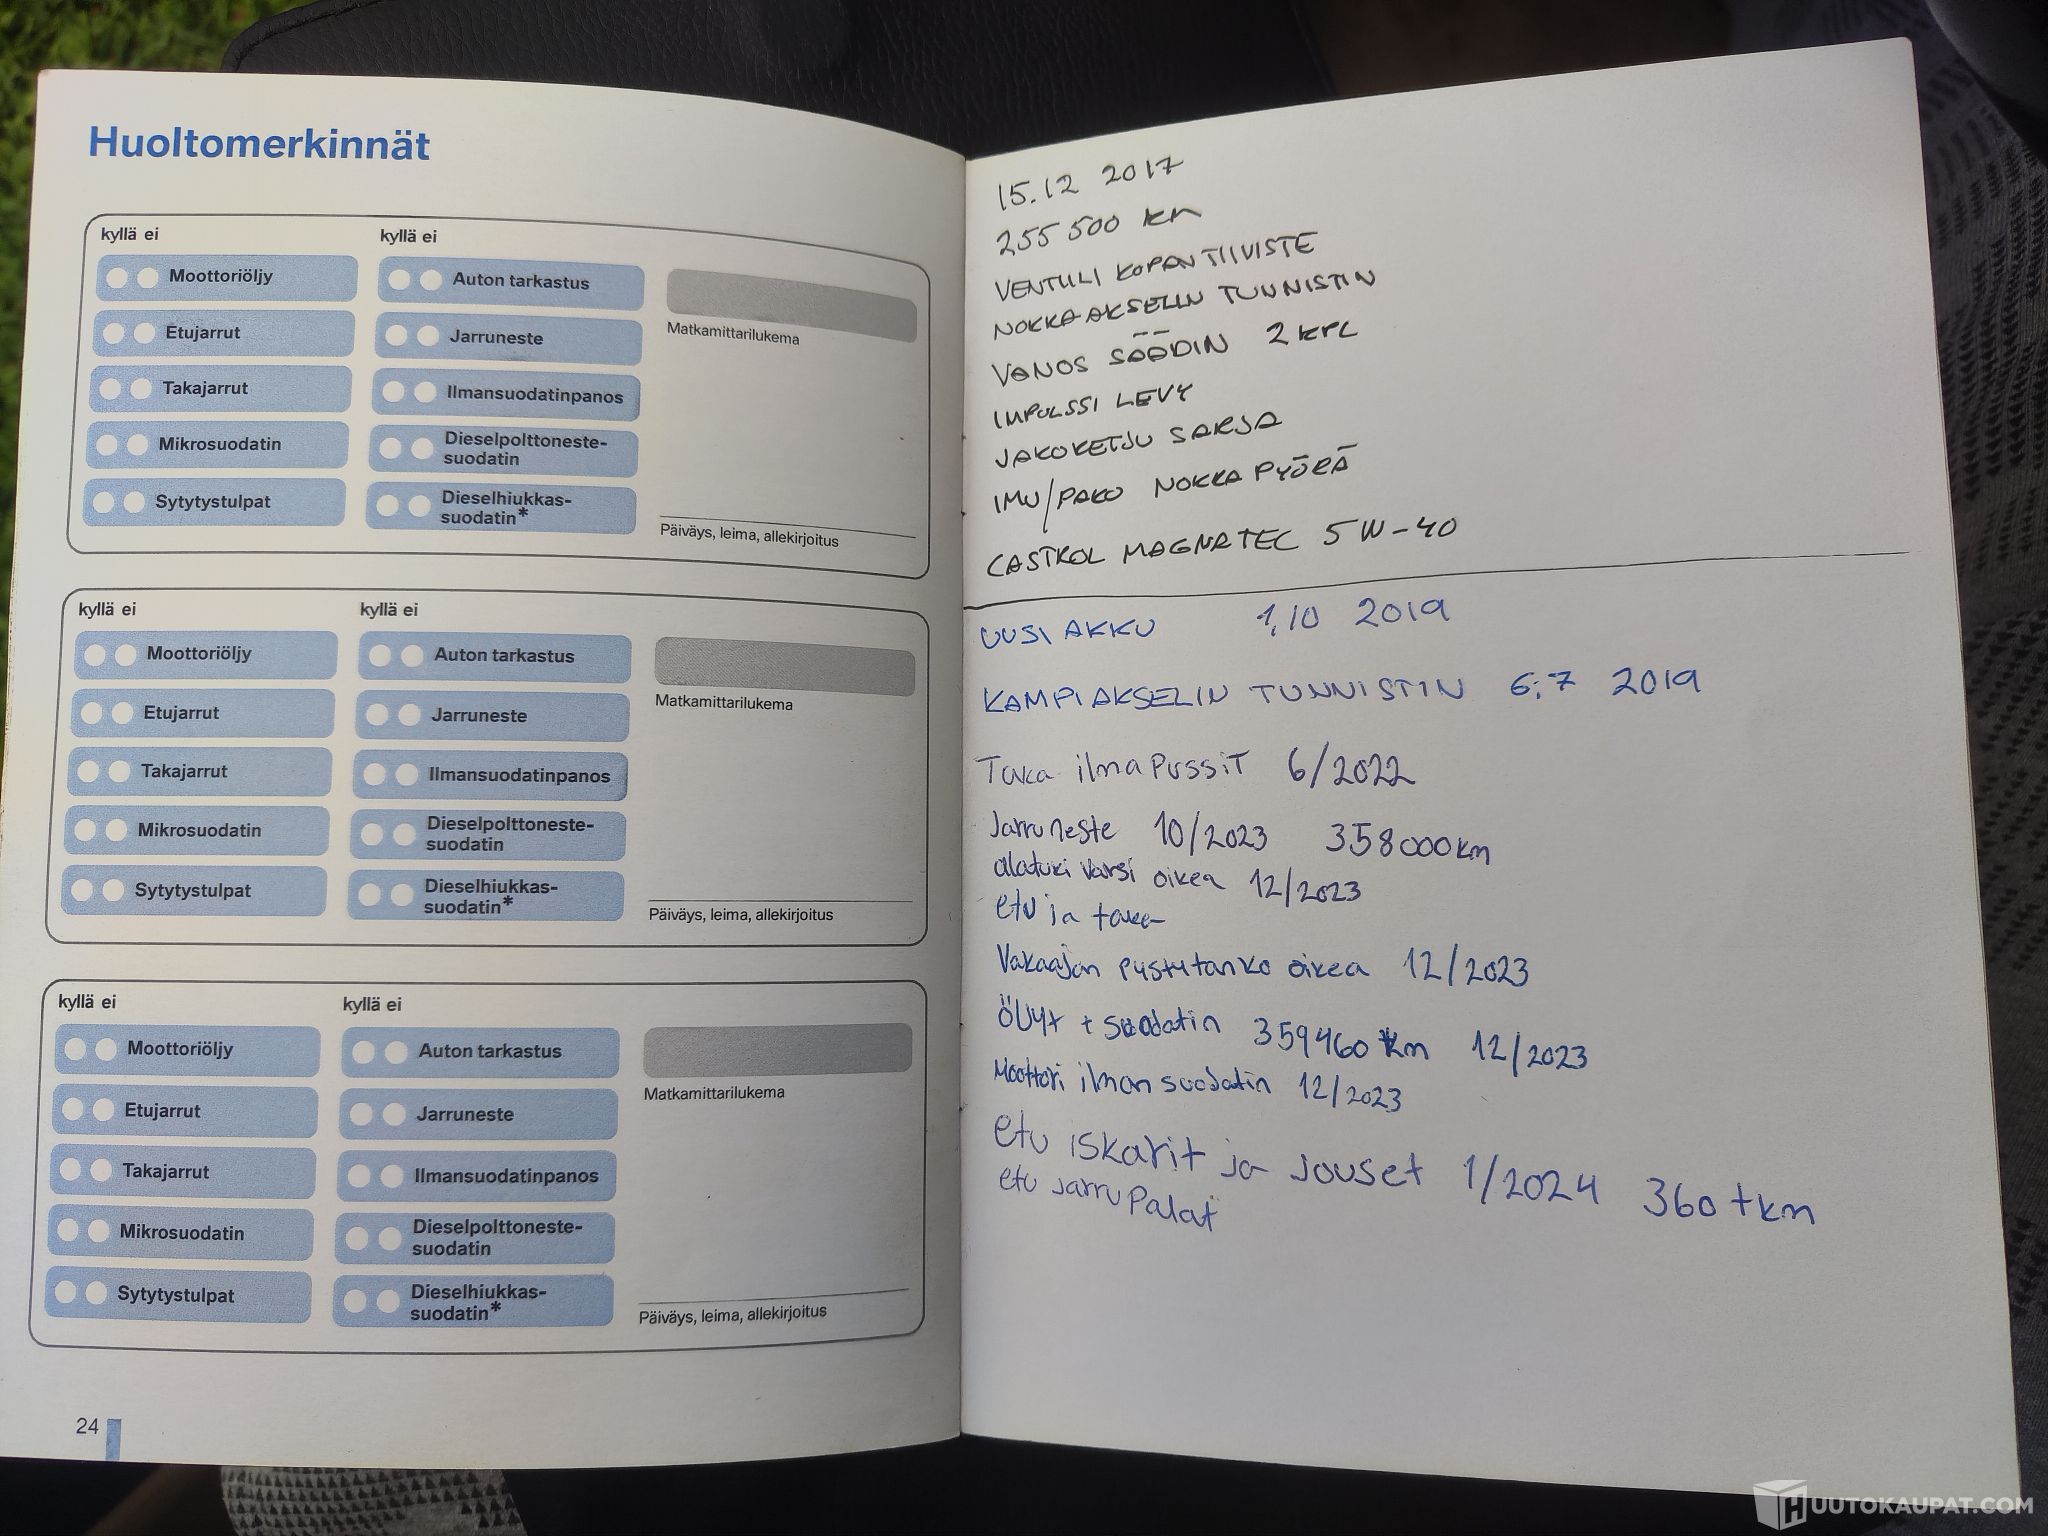 Huoltomerkinnät
kyllä ei
kyllä ei
Moottoriöljy
Auton tarkastus
Etujarrut
Jarruneste
Matkamittarilukema
Takajarrut
Ilmansuodatinpanos
Mikrosuodatin
Dieselpolttoneste-
suodatin
Sytytystulpat
Dieselhiukkas-
suodatin*
Päiväys, leima, allekirjoitus
kyllä ei
kyllä ei
Moottoriöljy
Auton tarkastus
Etujarrut
Jarruneste
Matkamittarilukema
Takajarrut
Ilmansuodatinpanos
Mikrosuodatin
Dieselpolttoneste-
suodatin
Sytytystulpat
Dieselhiukkas-
suodatin*
Päiväys, leima, allekirjoitus
kyllä ei
kyllä ei
Moottoriöljy
Auton tarkastus
Etujarrut
Jarruneste
Matkamittarilukema
Takajarrut
Ilmansuodatinpanos
Mikrosuodatin
Dieselpolttoneste-
suodatin
Sytytystulpat
Dieselhiukkas-
suodatin*
Päiväys, leima, allekirjoitus
24
15.12 2017
255 500 km
VENTIILI KOPAN TIIVISTE
NOKKA AKSELIN TUNNISTIN
VANOS SÄÄDIN 2 KPL
IMPULSSI LEVY
JAKOKETJU SARJA
IMU/PAKO NOKKA PYÖRÄ
CASTROL MAGNATEC 5W-40
UUSI AKKU 1,10 2019
KAMPIAKSELIN TUNNISTIN 6:7 2019
Taka ilmaPussiT 6/2022
Jarruneste 10/2023 358000km
alatuki varsi oikea 12/2023
etu ja taka
Vakaajan pystytanko oikea 12/2023
Öljyt + suodatin 359460 km 12/2023
Moottori ilman suodatin 12/2023
etu iskarit ja jouset 1/2024 360 tkm
etu jarruPalat
HUUTOKAUPAT.COM